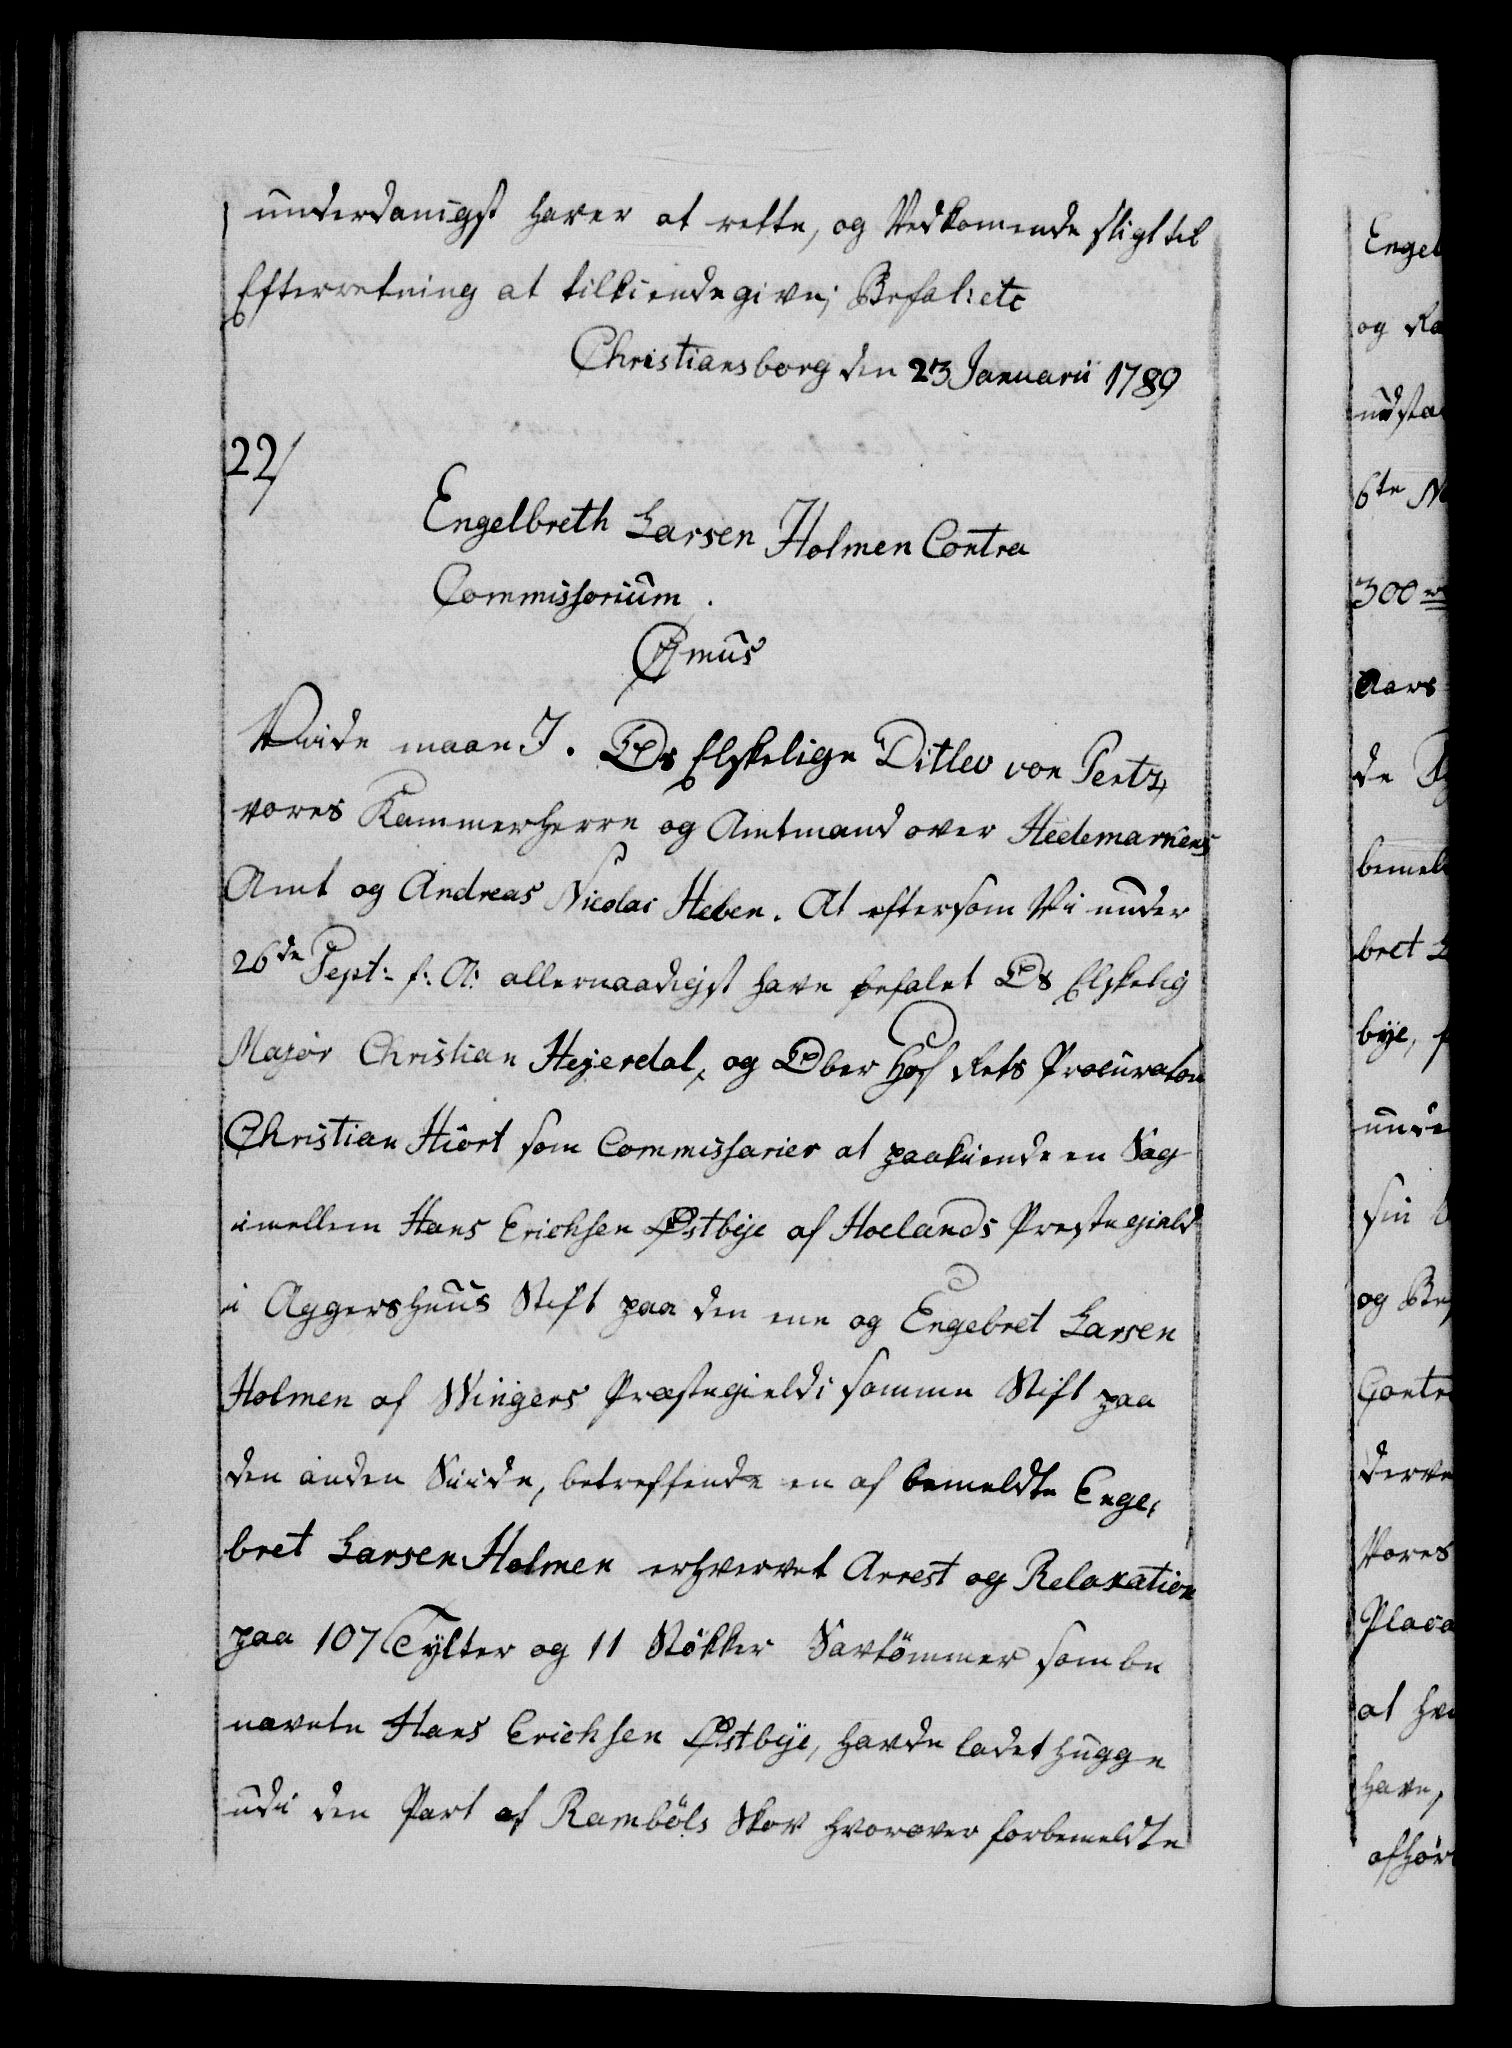 underdanigst haver at rette, og Vedkomende sligt til
Efterretning at tilkiendegive; Befal: etc
Christiansborg den 23 Januarii 1789
22/
Engelbreth Larsen Holmen Contra
Commissorium.
Cmus
Viide maae I. Os Elskelige Ditlev von Pentz,
vores Kammerherre og Amtmand over Hedemarkens
Amt og Andreas Nicolai Heben. At eftersom Vi under
26de Sept: f: A: allernaadigst have befalet Os Elskelig
Major Christian Hejerdal, og Ober Hof Rets Procurator
Christian Hiort som Commissarier at paakiende en Sag
imellem Hans Erichsen Østbye af Hoelands Præstegield
i Aggershuus Stift paa den ene og Engebret Larsen
Holmen af Wingers Præstegield i samme Stift paa
den anden Siide, betreffende en af bemeldte Enge,
bret Larsen Holmen erhvervet Arrest og Relaxation
paa 107 Tylter og 11 Støkker Savtömmer som be
nævnte Hans Erichsen Østbye, havde ladet hugge
udi den Part af Ramböls Skov hvorover forbemeldte
Engel
og Ra
udsta
6te No
300
Aars
de
bemel
bret L
bye, f
unde
sin
og Be
Contr
derve
Vores
Placa
at hv
have,
afhör